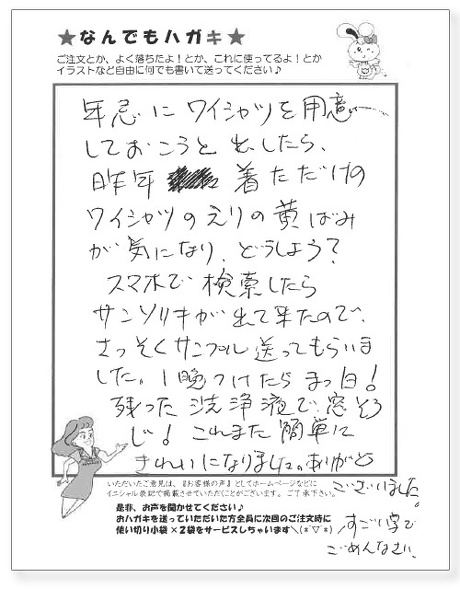 ★なんでもハガキ★
ご注文とか、よく落ちたよ！とか、これに使ってるよ！とか
イラストなど自由に何でも書いて送ってください♪
年忌にワイシャツを用意
しておこうと出したら、
昨年 着ただけの
ワイシャツのえりの黄ばみ
が気になり、どうしよう？
スマホで検索したら
サンソリキが出て来たので、
さっそくサンプル送ってもらいま
した。1晩つけたらまっ白！
残った洗浄液で窓そう
じ！これまた簡単に
きれいになりました。ありがとう
ございました。
いただいたご意見は、『お客様の声』としてホームページなどに
イニシャル表記で掲載させていただくことがございます。ご了承下さい。
是非、お声を聞かせてください♪
おハガキを送っていただいた方全員に次回のご注文時に
使い切り小袋×2袋をサービスしちゃいます＼(*´▽｀*)
すごい字で
ごめんなさい。